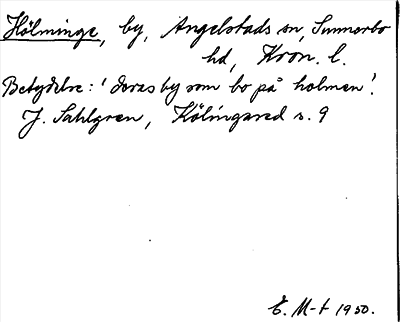 Hölminge, by, Angelstads sn, Sunnerbo
hd, Kron. l.
Betydelse: 'deras by som bo på holmen'.
J. Sahlgren, Kölingared s. 9
E. M-t 1950.